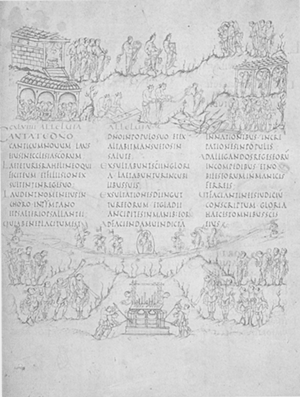 ALLELUIA
CANTATEDNO
CANTICUMNOUUM LAUS
EIUSINECCLESIASCORUM
LAETETURISRAHELINEOQUI
FECITEUM ETFILIISION EX
SULTENTINREGESUO
LAUDENTNOMENEIUSIN
CHORO INTYMPANO
ETPSALTERIOPSALLANTEI
QUIABENEPLACITUMEST
ALLELUIA
DNOINPOPULOSUO ETEX
ALTABITMANSUETOSIN
SALUTE
EXULTABUNTSCIINGLORIA
LAETABUNTURINCUBI
LIBUSSUIS
EXULTATIONESDIINGUT
TUREEORUM ETGLADII
ANCIPITESINMANIBEOR
ADFACIENDAMUINDICTA
INNATIONIBUS INCRE
PATIONESINPOPULIS
ADALLIGANDOSREGESEORU
INCOMPEDIBUS ETNOBI
LESEORUMINMANICIS
FERREIS
UTFACIANTINEISIUDICIU
CONSCRIPTUM GLORIA
HAECESTOMNIBUSSCIS
EIUS